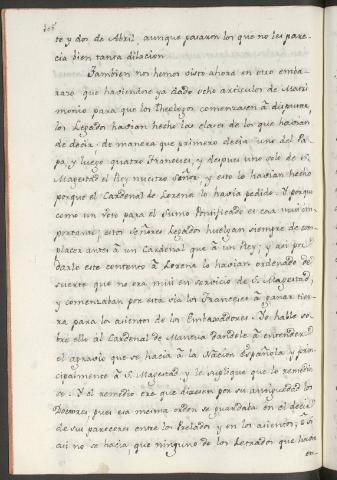 te y dos de Abril aunque pasaron los que no les pare-
cia bien tanta dilacion
Tambien nos hemos visto ahora en otro emba-
razo que haviendose ya dado ocho articulos de Matri
monio para que los Theologos comenzasen à disputar
los Legados havian hecho las clases de los que havian
de decir, de manera que primero decia uno del Pa-
pa y luego quatro Franceses, y despues uno solo de S.
Magestad el Rey nuestro Señor; y esto lo havian hecho
porque el Cardenal de Lorena lo havia pedido. Y porque
como un voto para el Sumo Pontificado es cosa mui im-
portante; estos Señores Legados huelgan siempre de com-
placer antes à un Cardenal que à un Rey; y asi por
darle este contento à Lorena lo havian ordenado de
suerte que no era mui en servicio de S. Magestad,
y comenzaban por esta via los Franceses à ganar tier-
ra para los asientos de los Embaxadores. Yo hable so-
bre ello al Cardenal de Mantua dandole à entender
el agravio que se hacia à la Nacion Española y prin-
cipalmente à S. Magestad y le suplique que lo remedia
se. Y el remedio era que dixesen por su antiguedad los
Doctores, pues esa mesma orden se guardaba en el decir
de sus pareceres entre los Prelados y en los asientos; ò si
asi no se hacia, que ninguno de los Letrados que havia
en-